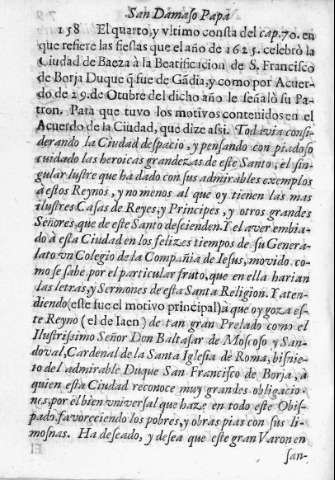 San Damaso Papa
158 El quarto, y vltimo consta del cap. 70. en
que refiere las fiestas que el año de 1625. celebrò la
Ciudad de Baeza à la Beatificacion de S. Francisco
de Borja Duque q̃ fue de Gãdia, y como por Acuer-
do de 29. de Otubre del dicho año le señalò su Pa-
tron. Para que tuvo los motivos contenidos en el
Acuerdo de la Ciudad, que dize assi. Todevia consi-
derando la Ciudad despacio, y pensando con piadoso
cuidado las heroicas grandezas de este Santo, el sin-
gular lustre que ha dado con sus admirables exemplos
à estos Reynos, y no menos al que oy tienen las mas
ilustres Casas de Reyes, y Principes, y otros grandes
Señores, que de este Santo descienden. Y el aver embia-
do à esta Ciudad en los felizes tiempos de su Genera-
lato vn Colegio de la Compañia de Iesus, movido. co-
mo se sabe por el particular fruto, que en ella harian
las letras, y Sermones de esta Santa Religion. Y aten-
diendo (este fue el motivo principal) à que oy goza es-
te Reyno (el de Iaen) de tan gran Prelado como el
Ilustrissimo Señor Don Baltasar de Moscoso y San-
doval, Cardenal de la Santa Iglesia de Roma, bisnie-
to del admirable Duque San Francisco de Borja, à
quien esta Ciudad reconoce muy grandes obligacio-
nes, por el bien vniversal que haze en todo este Obis-
pado, favoreciendo los pobres, y obras pias con sus li-
mosnas. Ha deseado, y desea que este gran Varon en
san-